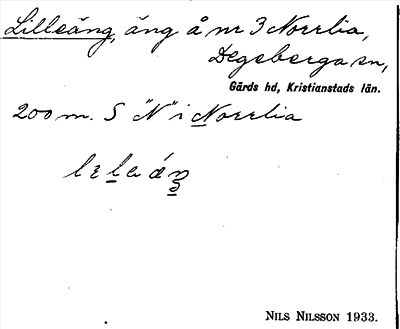 Lilleäng, äng å nr 3 Norrlia,
Degeberga sn,
Gärds hd, Kristianstads län.
200 m. S "N" i Norrlia
NILS NILSSON 1933.